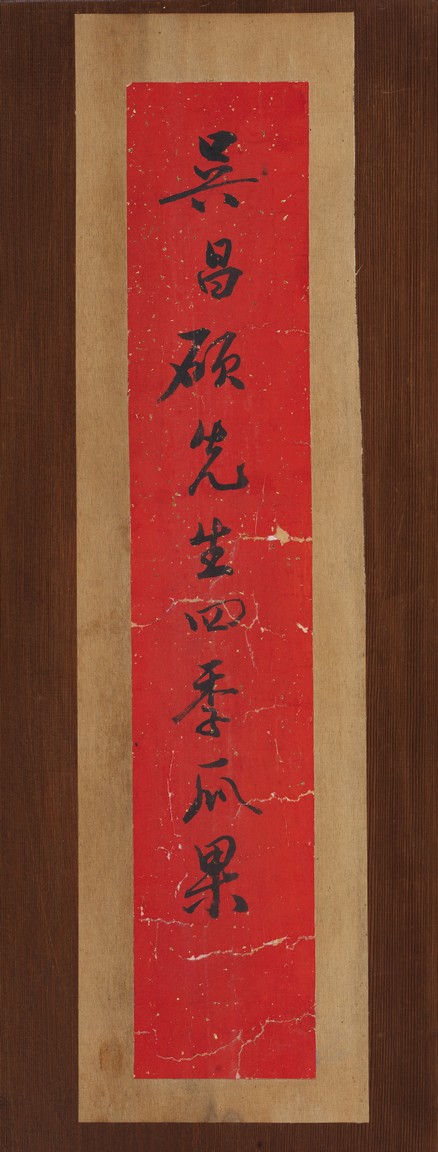 吳昌碩先生四季瓜果